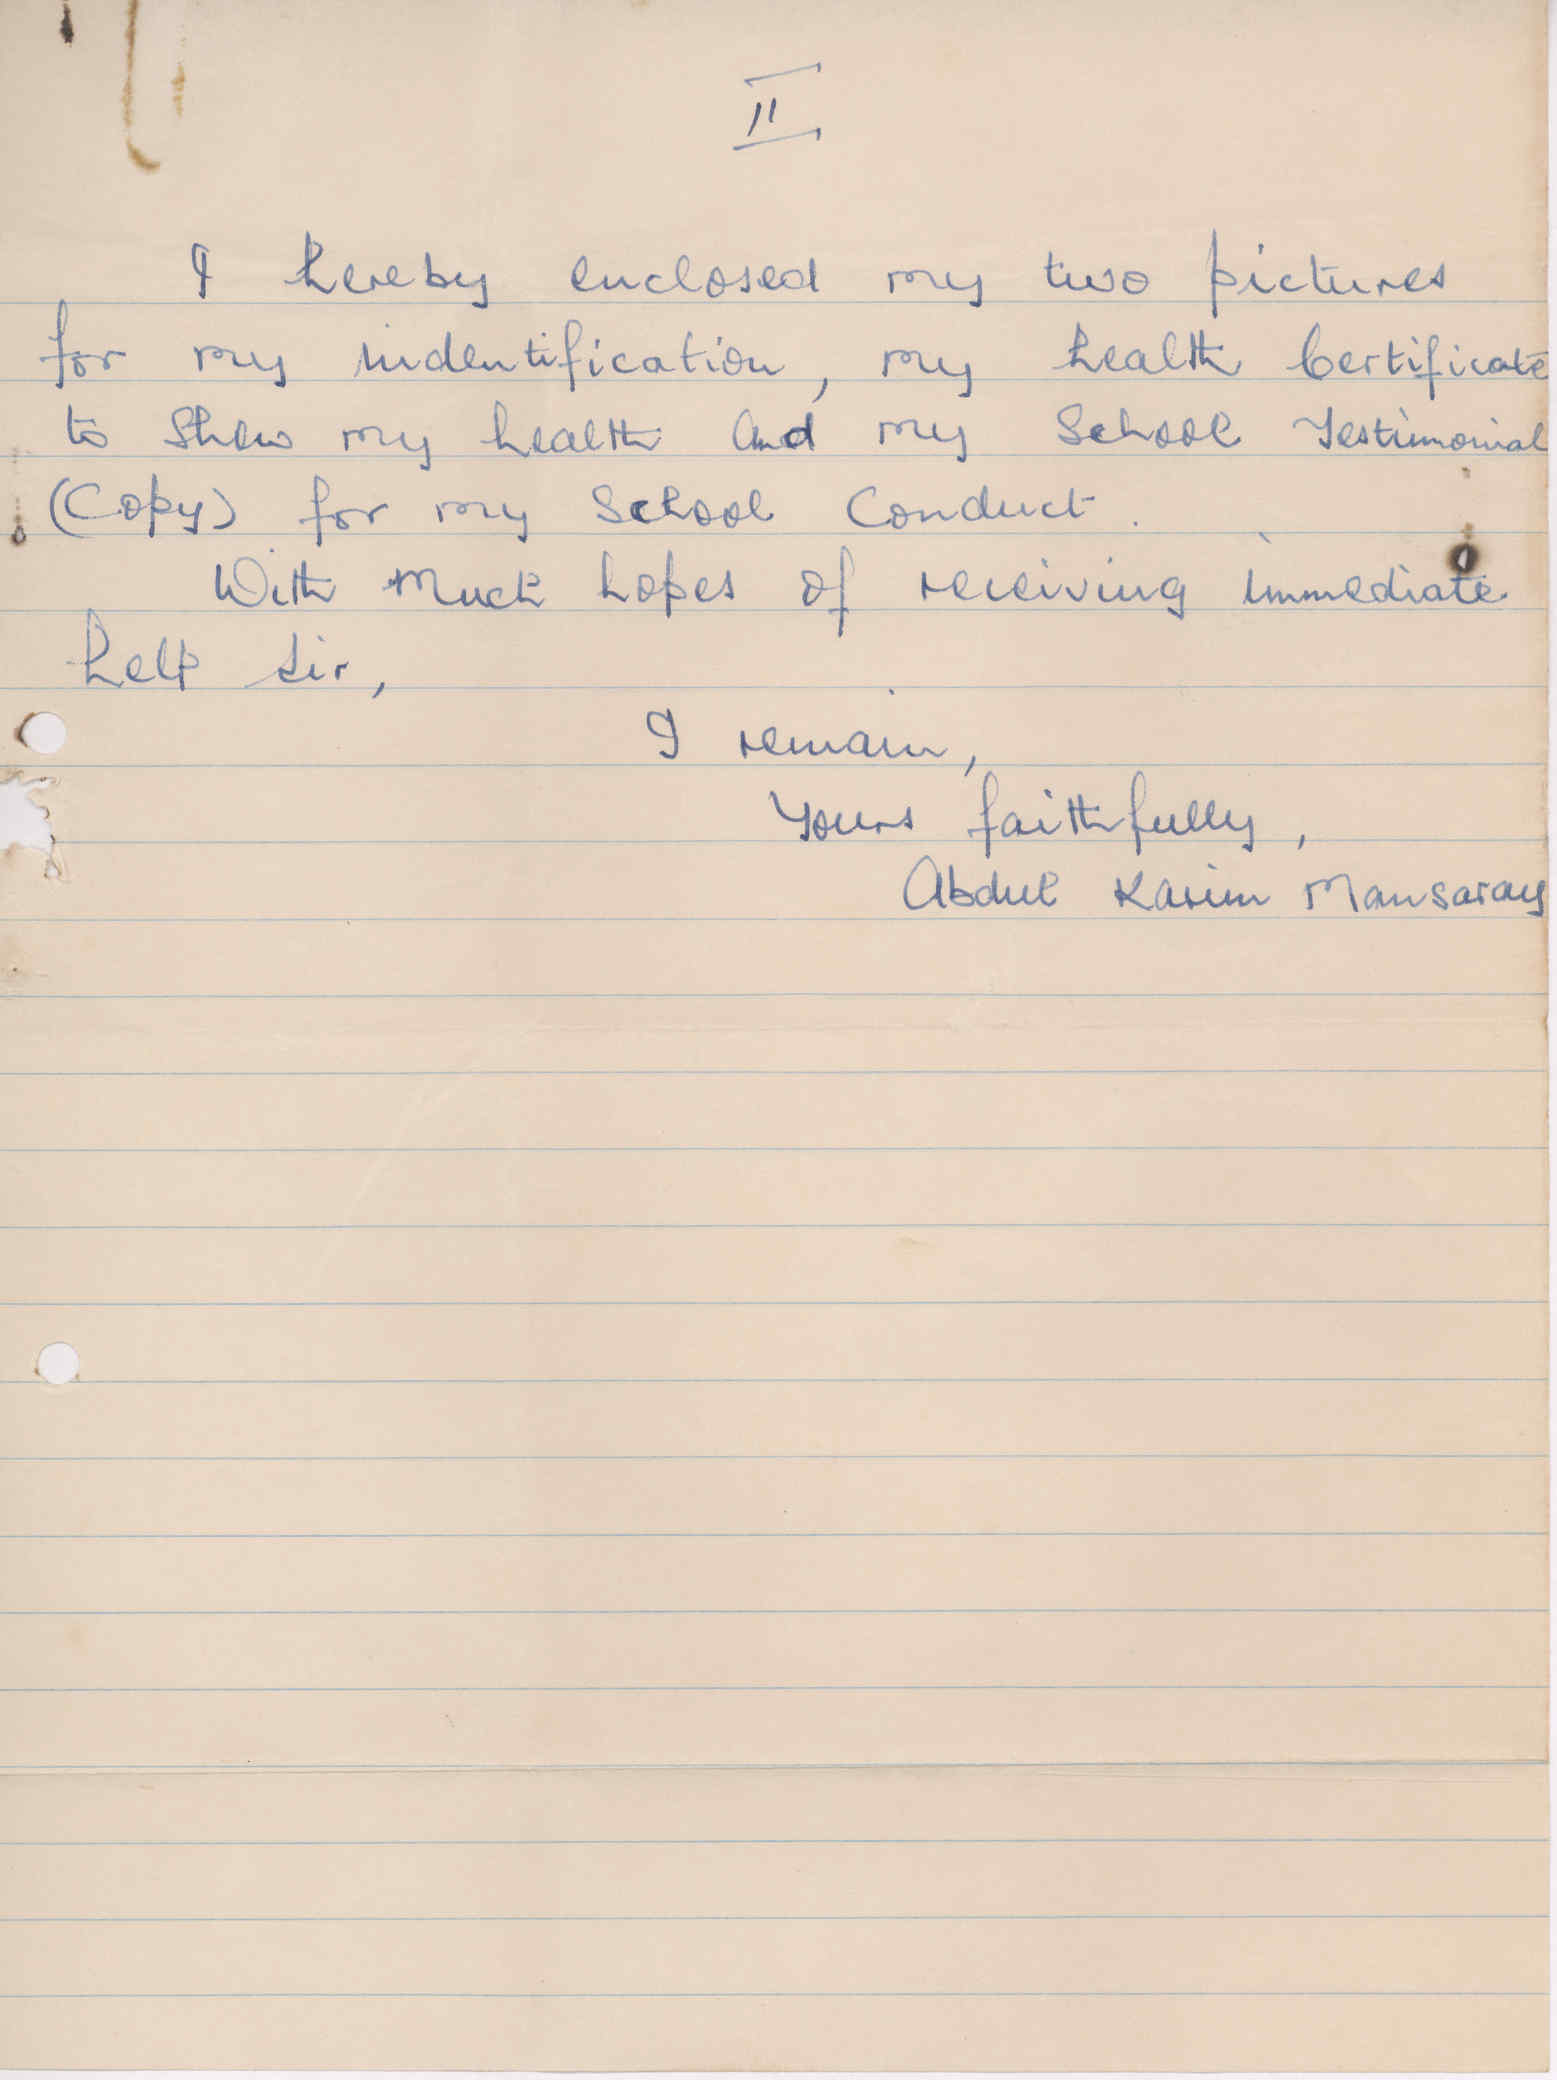 II
I hereby enclosed my two pictures
for my indentification, my health Certificate
to Shew my health And my School Testimonial
(Copy) for my School Conduct.
With Much hopes of receiving immediate
help Sir,
I remain,
Yours faithfully,
Abdul Karim Mansaray